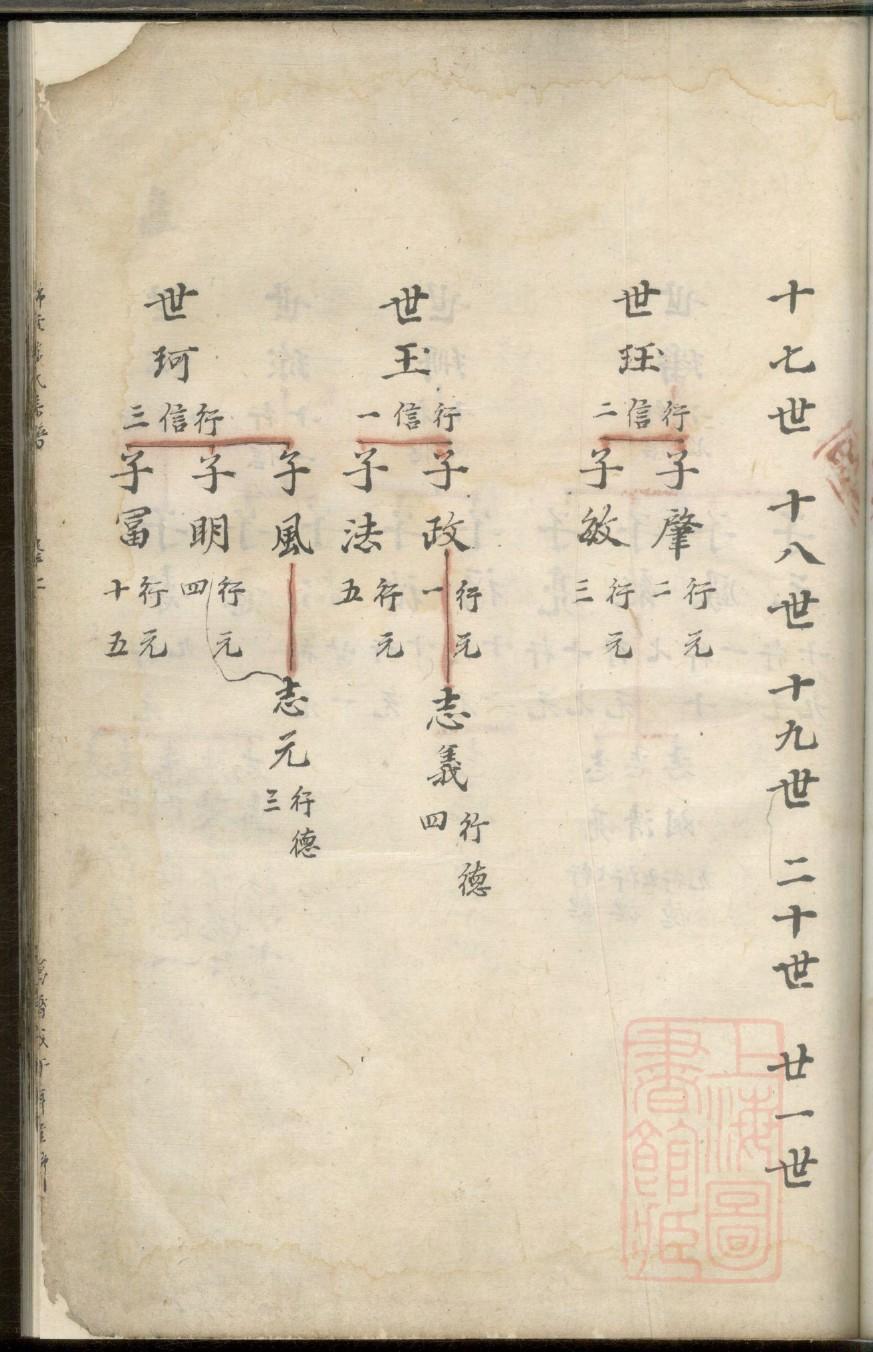 十七世 十八世 十九世 二十世 廿一世
世珏
行信二
子肇
行元二
子敏
行元三
世玉
行信一
子政
行元一
志義
行德四
子法
行元五
世珂
行信三
子風
志元
行德三
子明
行元四
子冨
行元十五
上海圖
書館藏